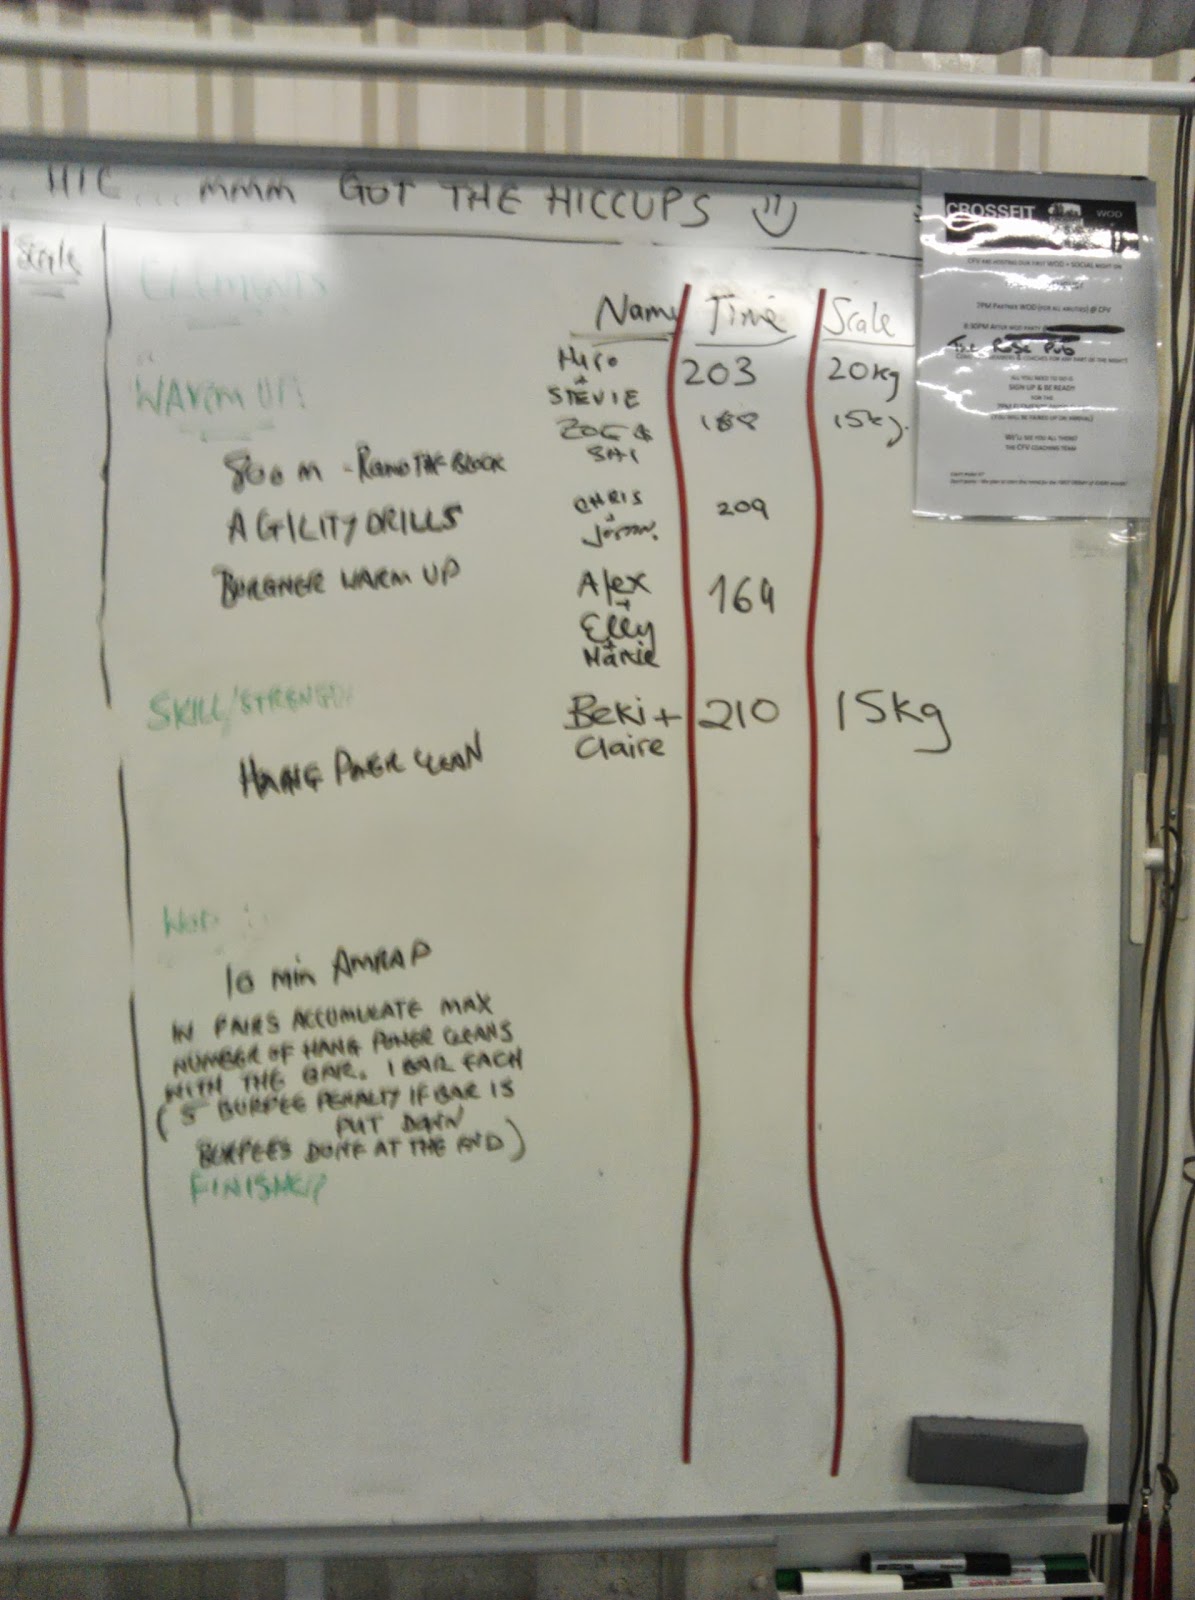 HIC... MMM GOT THE HICCUPS
Scale
ELEMENTS
Name Time Scale
WARM UP!
800 m - ROUND THE BLOCK
AGILITY DRILLS
BURGNER WARM UP
SKILL/STRENGTH
HANG POWER CLEAN
WOD:
10 min AMRAP
IN PAIRS ACCUMULATE MAX
NUMBER OF HANG POWER CLEANS
WITH THE BAR. 1 BAR EACH
(5 BURPEE PENALTY IF BAR IS
PUT DOWN
BURPEES DONE AT THE END)
FINISHER
203 20kg
+
STEVIE
ZOE & 15kg.
CHRIS 209
+
Jordan.
Alex 164
+
Elly
+
Marie
Beki + 210 15kg
Claire
CROSSFIT WOD
CFV ARE HOSTING OUR FIRST WOD + SOCIAL NIGHT ON
7PM PARTNER WOD (FOR ALL ABILITIES) @ CFV
8:30PM AFTER WOD PARTY @
The Rose Pub
ALL YOU NEED TO DO IS
SIGN UP & BE READY
FOR THE
WE'LL SEE YOU ALL THERE!
THE CFV COACHING TEAM